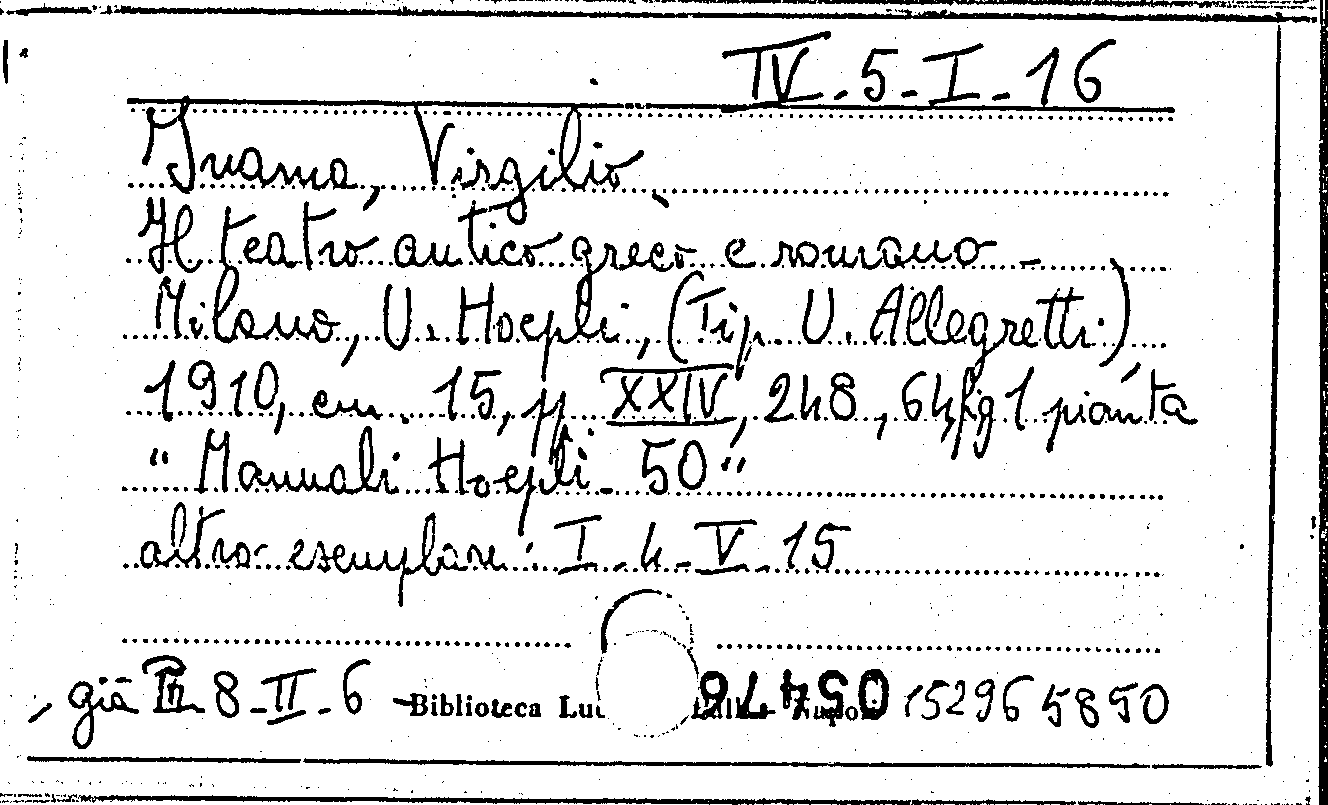 IV-5-I-16
Inama, Virgilio
Il teatro antico greco e romano -
Milano, U. Hoepli, (Tip. U. Allegretti)
1910, cm. 15, pp. XXIV, 248, 64 fig 1 pianta
"Manuali Hoepli - 50"
altro esemplare: I-4-V-15
già 8-II-6 Biblioteca 15296 5890